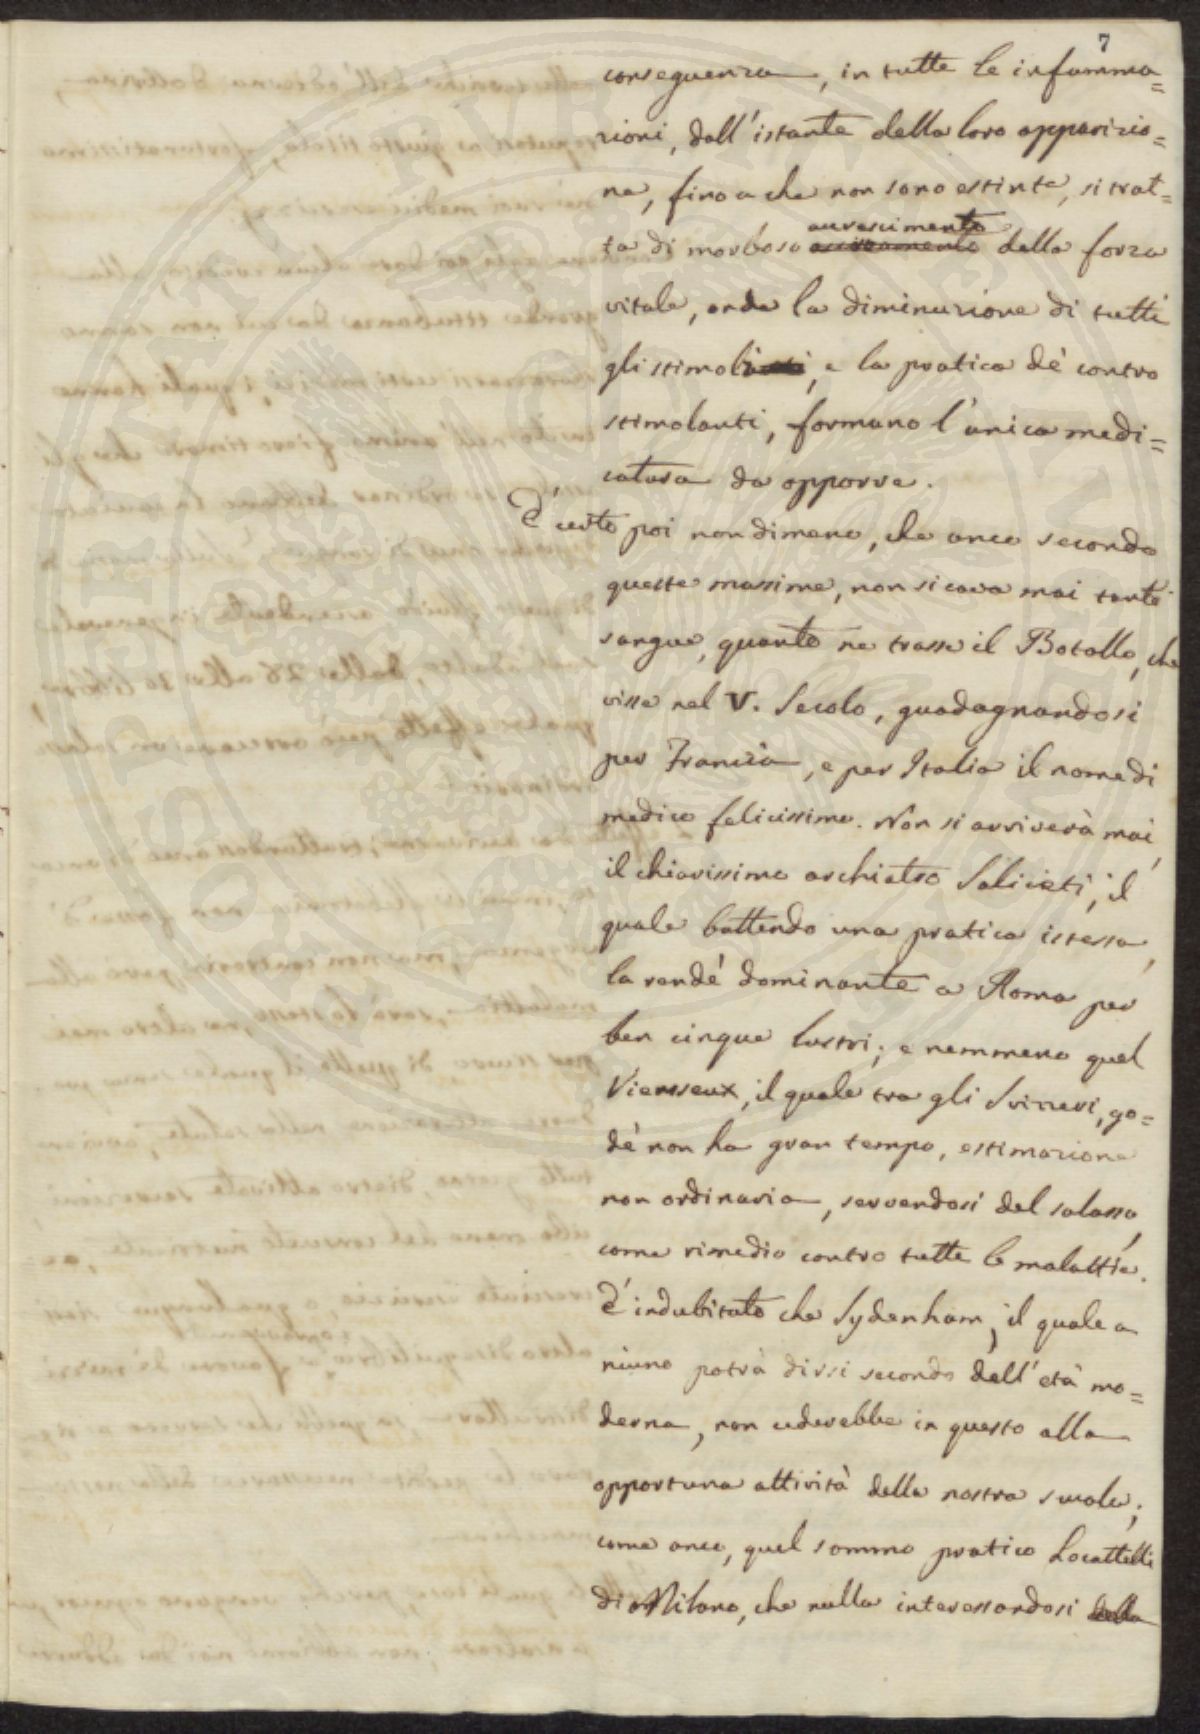 7
conseguenza, in tutte le infiamma=
zioni, dall'istante della loro apparizio=
ne, fino a che non sono estinte, si trat=
accrescimento
ta di morboso della forza
vitale, onde la diminuzione di tutti
gli stimoli, e la pratica de' contro
stimolanti, formano l'unica medi=
catura da opporre.
È certo poi nondimeno, che anco secondo
queste massime, non si cava mai tanto
sangue, quanto ne trasse il Botallo, che
visse nel V. Secolo, guadagnandosi
per Francia, e per Italia il nome di
medico felicissimo. Non si arriverà mai
il chiarissimo archiatro Saliceti, il
quale battendo una pratica istessa,
la rendè dominante a Roma per
ben cinque lustri; e nemmeno quel
Vieusseux, il quale tra gli Svizzeri, go=
dè non ha gran tempo, estimazione
non ordinaria, servendosi del salasso,
come rimedio contro tutte le malattie.
È indubitato che Sydenham, il quale a
niuno potrà dirsi secondo dell'età mo=
derna, non cederebbe in questo alla
opportuna attività della nostra scuola;
come anco, quel sommo pratico Locattelli
di Milano, che nulla interessandosi della